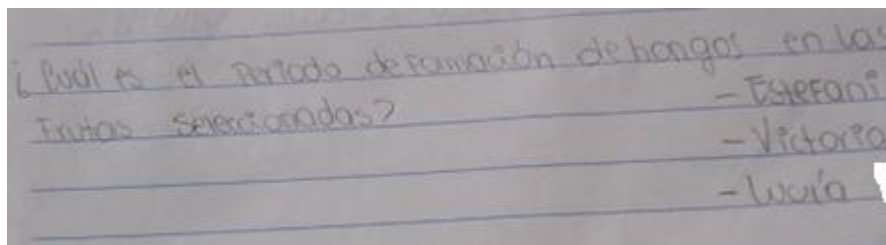 ¿Cuál es el Periodo de formación de hongos en las
Frutas seleccionadas?
- Estefani
- Victoria
- Lucía